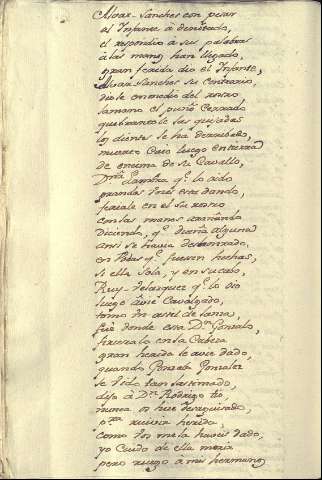 Alvar-Sanches con pesar
al Infante á denostado,
el respondio a sus palabras
á las manos han llegado,
gran ferida dio el Infante,
Alvar Sanches su contrario,
diole en medio del rostro
la mano el puño cerrado
quebrantole las quijadas
los dientes le ha derribado,
muerto Caio luego en tierra
de encima de su Cavallo,
Dña Lambra q.e lo oido
grandes voces está dando,
feriale en el su rostro
con las manos arañando
diciendo, q.e dueña alguna
ansi se havia deshonrado,
en Bodas q.e fuesen fechas,
si ella sola, y en su cabo,
Ruy Velazquez q.e lo vio
luego avie Cavalgado,
tomo un astil de lanza,
fué donde esta Dn Gonzalo,
firieralo en la Cabeza
gran herida le avie dado,
quando Gonzalo Gonzalez
se vido tan lastimado,
dijo á Dn Rodrigo tio,
nunca os hube deseguisado,
como vos me la haveis dado,
yo Cuido de ella moria
pero ruego a mis hermanos